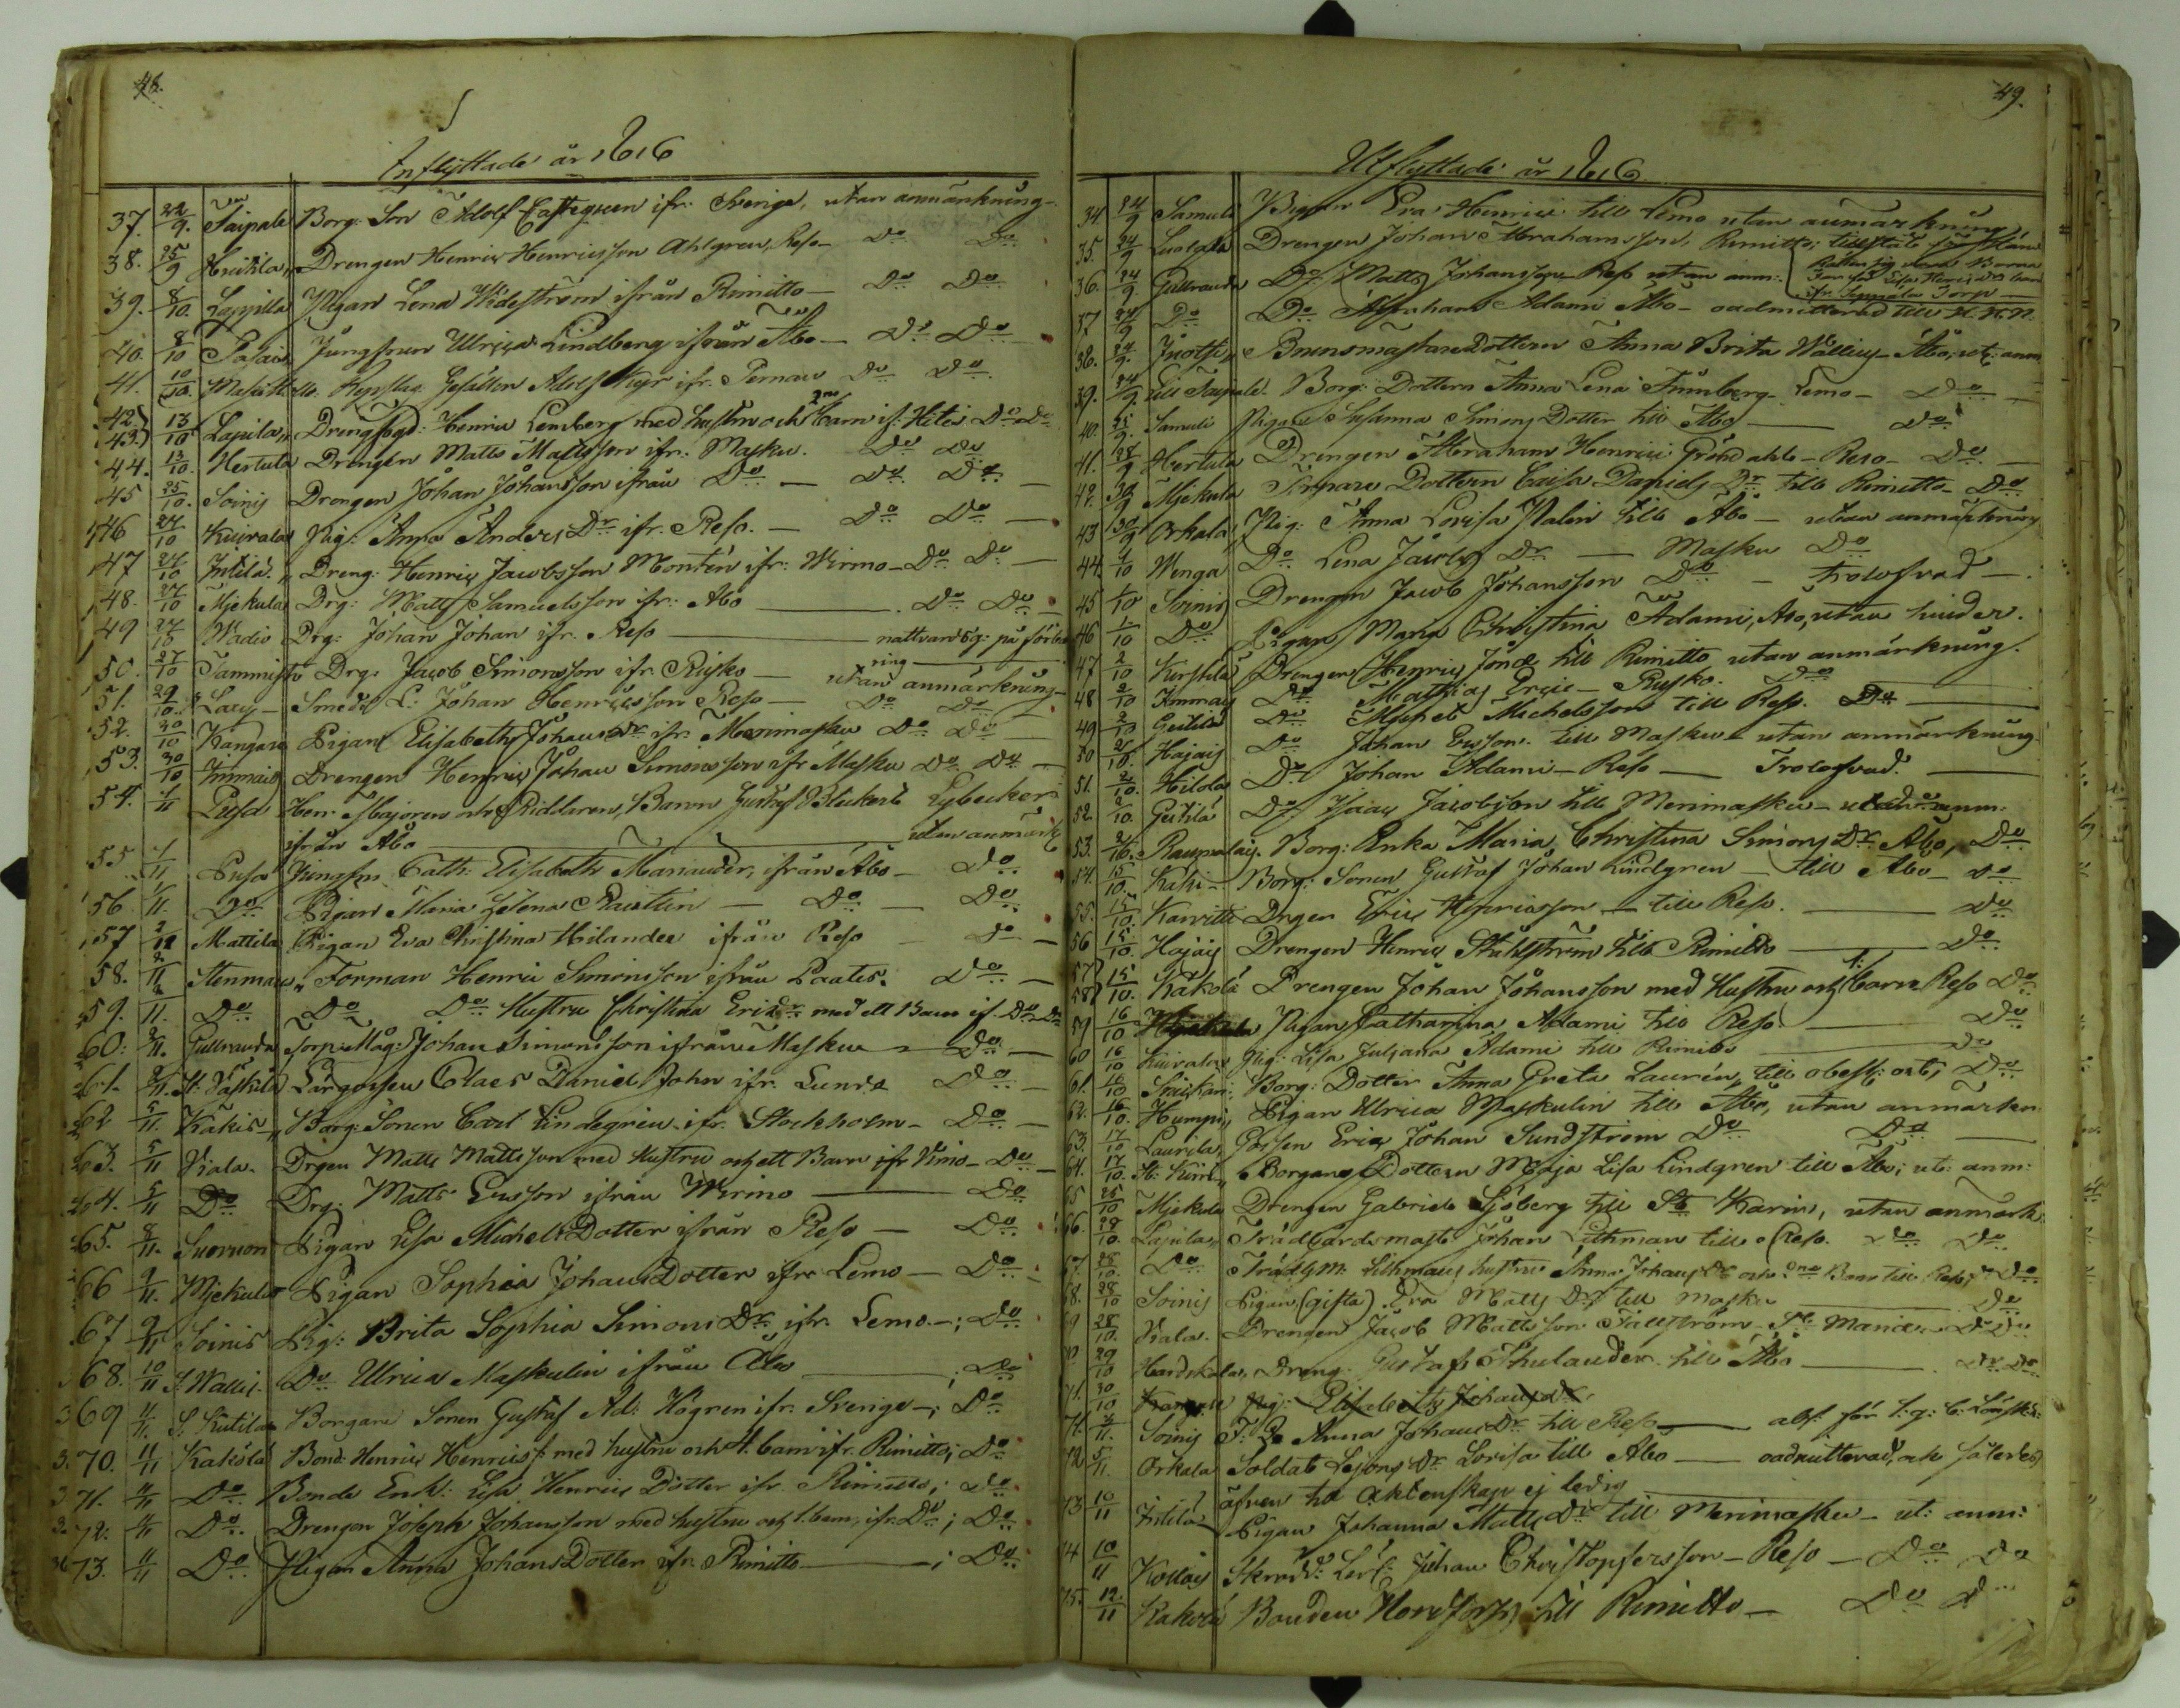 48.
Inflyttade år 1816
37. 22/9. Taipale Borg: Son Adolf Castegren ifr. Sverige, utan anmärkning
38. 25/9 Drengen Henric Henricsson Ahlgren, Reso Do Do
39. 8/10. Lappila Pigan Lena Wideström ifrån Rimitto — Do Do
40. 8/10 Jungfrun Ulrica Lindberg ifrån Åbo — Do Do
41. 10/10. Gesällen Adolf ifr. Pernau Do Do
42. 43. 13/10 Lapila Drengfogd: Henric Lemberg med hustru och 2ne barn if. Do Do
44. 13/10. Hertula Drengen Matts Mattsson ifr. Masku. Do Do
45 25/10. Soinis Drengen Johan Johansson ifrån Do — Do Do —
46 27/10 Kuivala Pig: Anna Anders Dr ifr. Reso. — Do Do —
47 27/10 Intilä Dreng: Henric Jacobsson Montén ifr: Wirmo — Do Do —
48. 27/10 Mjekula Drg: Matts Samuelsson ifr. Abo — Do Do —
49 27/10 Drg: Johan Johan ifr. Reso — nattvardsg: på
50. 27/10 Tammisto Drg. Jacob Simonsson ifr. Rusko — utan anmärkning
51. 29/10. Smeds L: Johan Henricsson Reso — Do Do —
52. 30/10 Kangare Pigan Elisabeth Johans Dr ifr. Merimasku Do Do —
53. 30/10 Immais Drengen Henric Johan Simonsson ifr Masku Do Do —
54. 1/11 Pusa Herr Majoren och Riddaren, Baron Gustaf Bleckert Lybecker
ifrån Åbo — utan anmärk
55 1/11 Pusa Jungfru Cath: Elisabeth Mariander, ifrån Åbo — Do
56 1/11. Do Pigan Maria Helena — Do — Do
57 2/11 Mattila Pigan Eva Christina Hilander ifrån Reso — Do —
58. 2/11 Stenman Forman Henric Simonsson ifrån Paatis. Do —
59. 2/11. Do Do Do Hustru Christina Eric Dr med ett Barn if. Do Do
60: 2/11. Gullranda Torp: Måg: Johan Simonsson ifrån Masku — Do —
61. 2/11. Claes Daniel John ifr. Lundo Do —
62 5/11. Käkis Borg: Sonen Carl Lindegrén ifr. Stockholm — Do —
63. 5/11 Viala. Drgen Matts Mattsson med Hustru och ett Barn ifr Vimo — Do —
64. 5/11 Do Drg. Matts Ersson ifrån Wirmo — Do
65. 8/11. Suorvon Pigan Lisa Michels Dotter ifrån Reso — Do
66 9/11. Mjekula Pigan Sophia Johans Dotter ifr. Lemo — Do
67 9/11 Soinis Pig: Brita Sophia Simons Dr ifr. Lemo —; Do
68. 10/11 S. Wallis. Do Ulrica Maskulin ifrån Åbo —; Do
369 11/11. Borgare Sonen Gustaf Ad: Högren ifr. Sverige —; Do
370. 11/11 Kakola Bond: Henric Henrics: med hustru och 4. barn ifr. Rimitto; Do
371. 11/11 Do Bonde Enk: Lisa Henrics Dotter ifr. Rimitto; Do
372: 11/11 Do Drengen Joseph Johansson med hustru och 1. barn, ifr. Do; Do
373. 11/11 Do Pigan Anna Johans Dotter ifr. Rimitto —; Do
49.
Utflyttade år 1816
34. 24/9 Samuli Pigan Eva Henrici till Lemo utan anmärkning
35. 24/9 Luolala Drengen Johan Abrahamsson, Rimitto;
36. 24/9 Gullranda Do Matts Johansson Reso utan anm:
37 24/9 Do Do Abraham Adami Åbo — oadmitterad till H. H. N.
38. 24/9. Brunsmästare Dottern Anna Brita Wallius Åbo, ut: anm
39. 24/9 Lill Taipale Borg: Dottern Anna Lena Lemo — Do —
40. 25/9. Samuli Pigan Susanna Simons Dotter till Åbo — Do
41. 28/9 Hertula Drengen Abraham Henrici Gröndahl — Reso — Do —
42. 30/9 Mjekula Torpare Dottern Caisa Daniels Dr till Rimitto — Do
43 30/9 Orkala Pig: Anna Lovisa Palin till Åbo — utan anmärkning
44 1/10 Winga Do Lena Jacobs Dr — Masku Do
45 1/10 Soinis Drengen Jacob Johansson Do — trolofvad —.
46 1/10 Do Pigan Maria Christina Adami, Åbo, utan hinder.
47 2/10 Drengen Henric till Rimitto, utan anmärkning.
48 2/10 Immais Do Matthias Eric — Rusko. Do
49 2/10 Geitilä Do Michel Michelsson till Reso. Do
50 2/10. Hajais Do Johan Ersson. till Masku — utan anmärkning
51. 2/10. Do Johan Adami — Reso — Trolofvad. —
52. 2/10. Geitilä Do Isaac Jacobsson till Merimasku — utan anm:
53. 2/10. Raumalais. Borg: Enka Maria Christina Simons Dr Åbo, Do
54. 15/10. Kaki — Borg: Sonen Gustaf Johan Lindgren — till Åbo — Do
55. 15/10. Karvitti Drgen Eric Henricsson — till Reso. — Do
56 15/10. Hajais Drengen Henric Stålström till Rimitto — Do
57 58 15/10. Kakola Drengen Johan Johansson med Hustru och 1: barn Reso Do
59 16/10 Pigan Catharina Adami till Reso — Do
60 16/10 Kuivala Pig: Lisa Juliana Adami till Rimitto — Do
61. 16/10 Borg: Dotter Anna Greta Laurén, till obest: ort; Do
62. 16/10. Humpis Pigan Ulrica Maskulin till Åbo, utan anmärkn
63. 17/10 Laurila Gossen Eric Johan Sundström Do Do —
64. 17/10. Borgare Dottern Maja Lisa Lindgren till Åbo; ut: anm:
65 25/10 Mjekula Drengen Gabriel Sjöberg till St Karins, utan anmärk:
66. 28/10. Lapila Trädgårdsmäst: Johan Lithman till Reso. Do Do
67 28/10. Do Trädg.M. Lithmans hustru Anna Johans Dr och 2ne Barn till Reso, Do
68. 28/10 Soinis Pigan (gifta) Eva Matts Dr till Masku — Do
69 28/10. Viala. Drengen Jacob Mattsson Fallström St Mariæ — Do Do
70 29/10 Dreng. Gustaf Thulander till Åbo — Do Do
71. 30/10 Pig: Elisabeth Johans Dr
71. 3/11. Soinis Anna Johans Dr till Reso —
72 5/11. Orkala Soldats Dr Lovisa till Åbo — oadmitterad, och således
äfven til Äktenskap ej ledig
73 10/11 Intilä Pigan Johanna Matts Dr till Merimasku — ut: anm:
74 10/11 Kollois Skrädd: Lärl: Johan Christopfersson — Reso — Do Do
75. 12/11 Kakola Bonden till Rimitto — Do D